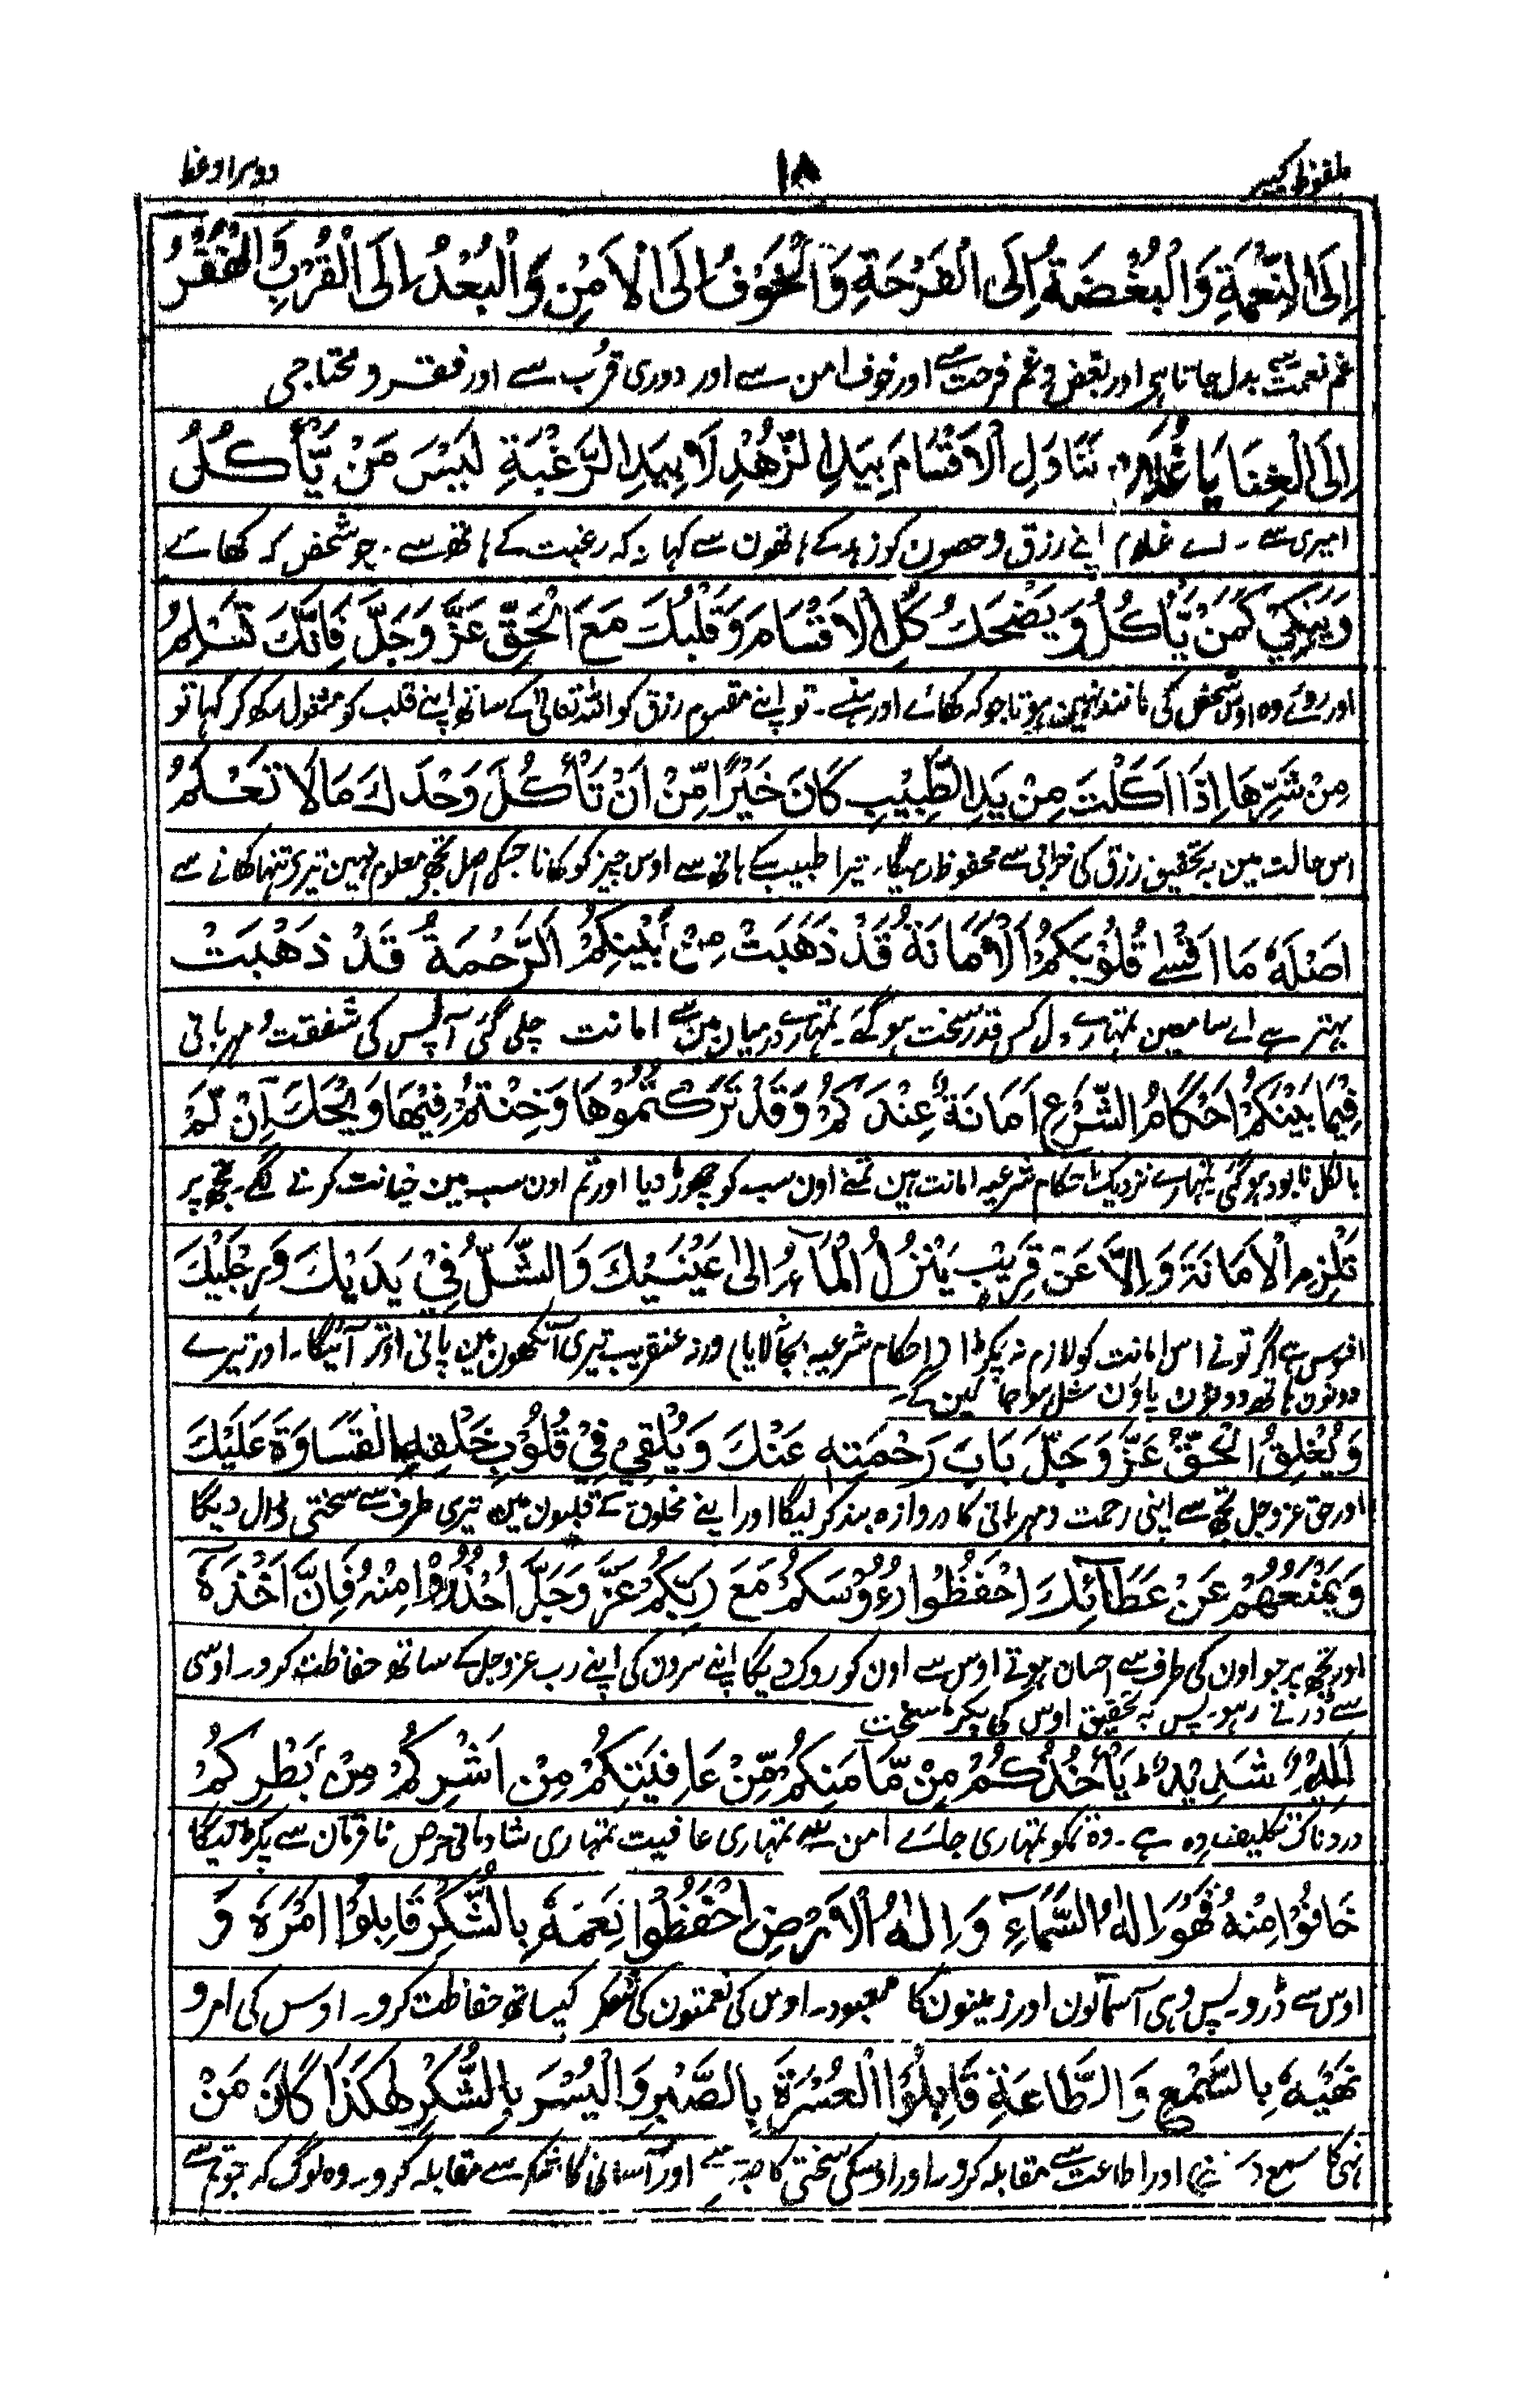 ملفوظ کبیر
۱۸
دوسرا وعظ
اِلَى النِّعْمَةِ وَالْبُغْضَةُ اِلَى الْفَرْحَةِ وَالْخَوْفُ اِلَى الْاَمْنِ وَالْبُعْدُ اِلَى الْقُرْبِ وَالْفَقْرُ
غم نعمت سے بدل جاتا ہی اور بغض و غم فرحت سے اور خوف امن سے اور دوری قرُب سے اور فقر و محتاجی
اِلَى الْغِنَا يَا غُلَامُ تَنَاوَلِ الْاَقْسَامَ بِيَدِ الزُّهْدِ لَا بِيَدِ الرَّغْبَةِ لَيْسَ مَنْ يَّاْكُلُ
امیری سے ۔ اے غلام اپنے رزق و حصون کو زہد کے ہاتھون سے کہا نہ کہ رغبت کے ہاتھ سے ۔ جو شخص کہ کھائے
وَيَبْكِيْ كَمَنْ يَّاْكُلُ وَيَضْحَكُ كُلِ الْاَقْسَامَ وَقَلْبُكَ مَعَ الْحَقِّ عَزَّ وَجَلَّ فَاِنَّكَ تَسْلِمُ
اور روئے وہ اوس شخص کی مانند نہین ہوتا جو کہ کھائے اور ہنسے ۔ تو اپنے مقسوم رزق کو اللہ تعالیٰ کے ساتھ اپنے قلب کو مشغول رکھ کر کہا تو
مِنْ شَرِّهَا اِذَا اَكَلْتَ مِنْ يَدِ الطَّبِيْبِ كَانَ خَيْرًا مِّنْ اَنْ تَاْكُلَ وَحْدَكَ مَا لَا تَعْلَمُ
اس حالت مین بہ تحقیق رزق کی خرابی سے محفوظ رہیگا۔ تیرا طبیب کے ہاتھ سے اوس چیز کو کھانا جسکی اصل تجھے معلوم نہین تیری تنہا کھانے سے
اَصْلَهٗ مَا اَقْسٰے قُلُوْبَكُمْ اَلْاَمَانَةُ قَدْ ذَهَبَتْ مِنْ بَيْنِكُمْ اَلرَّحْمَةُ قَدْ ذَهَبَتْ
بہتر ہے اے سامعین تمہارے دل کس قدر سخت ہو گئے ۔ تمہارے درمیان مین سے امانت چلی گئی آپس کی شفقت و مہربانی
فِيْمَا بَيْنَكُمْ اَحْكَامُ الشَّرْعِ اَمَانَةٌ عِنْدَكُمْ وَقَدْ تَرَكْتُمُوْهَا وَخِنْتُمْ فِيْهَا وَيْحَكَ اِنْ لَّمْ
بالکل نابود ہو گئی تمہارے نزدیک احکام شرعیہ امانت ہین تمنے اون سب کو چھوڑ دیا اور تم اون سب مین خیانت کرنے لگے ۔ تجھ پر
تَلْزِمِ الْاَمَانَةَ وَاِلَّا عَنْ قَرِيْبٍ يَنْزِلُ الْمَآءُ اِلٰى عَيْنَيْكَ وَالشَّلُّ فِيْ يَدَيْكَ وَرِجْلَيْكَ
افسوس ہے اگر تونے اس امانت کو لازم نہ پکڑا (احکام شرعیہ بجا نہ لایا) ورنہ عنقریب تیری آنکھون مین پانی اوتر آئیگا۔ اور تیرے
دونون ہاتھ دونون پاؤن شل ہو جائین گے۔
وَيُغْلِقُ الْحَقُّ عَزَّ وَجَلَّ بَابَ رَحْمَتِهٖ عَنْكَ وَيُلْقِيْ فِيْ قُلُوْبِ خَلْقِهِ الْقَسَاوَةَ عَلَيْكَ
اور حق عز و جل تجھ سے اپنی رحمت و مہربانی کا دروازہ بند کر لیگا اور اپنے مخلوق کے قلبون مین تیری طرف سے سختی ڈال دیگا
وَيَمْنَعُهُمْ عَنْ عَطَائِكَ اِحْفَظُوْا رُءُوْسَكُمْ مَعَ رَبِّكُمْ عَزَّ وَجَلَّ اُحْذُرُوْا مِنْهُ فَاِنَّ اَخْذَهٗ
اور تجھ پر جو اون کی طرف سے احسان ہوتے اوس سے اون کو روک دیگا اپنے سرون کی اپنے رب عز و جل کے ساتھ حفاظت کرو۔ اوسی
سے ڈرتے رہو۔ پس بہ تحقیق اوس کی پکڑ سخت
اَلِيْمٌ شَدِيْدٌ يَاْخُذُكُمْ مِنْ مَّاْمَنِكُمْ مِّنْ عَافِيَتِكُمْ مِنْ اَشْرِكُمْ مِنْ بَطْرِكُمْ
دردناک تکلیف دہ ہے ۔ وہ تمکو تمہاری جائے امن سے تمہاری عافیت تمہاری شادمانی حرص نافرمان سے پکڑ لیگا
خَافُوْا مِنْهُ فَهُوَ اِلٰهُ السَّمَآءِ وَاِلٰهُ الْاَرْضِ اِحْفَظُوْا نِعَمَهٗ بِالشُّكْرِ قَابِلُوْا اَمْرَهٗ وَ
اوس سے ڈرو۔ پس وہی آسمانون اور زمینون کا معبود ۔ اوس کی نعمتون کی شکر کیساتھ حفاظت کرو۔ اوس کی امر و
نَهْيَهٗ بِالسَّمْعِ وَالطَّاعَةِ قَابِلُوا الْعُسْرَةَ بِالصَّبْرِ وَالْيُسْرَ بِالشُّكْرِ هٰكَذَا كَانَ مَنْ
نہی کا سمع و اور اطاعت سے مقابلہ کرو۔ اور اوسکی سختی کا صبر سے اور آسانی کا شکر سے مقابلہ کرو۔ وہ لوگ کہ جو تم سے